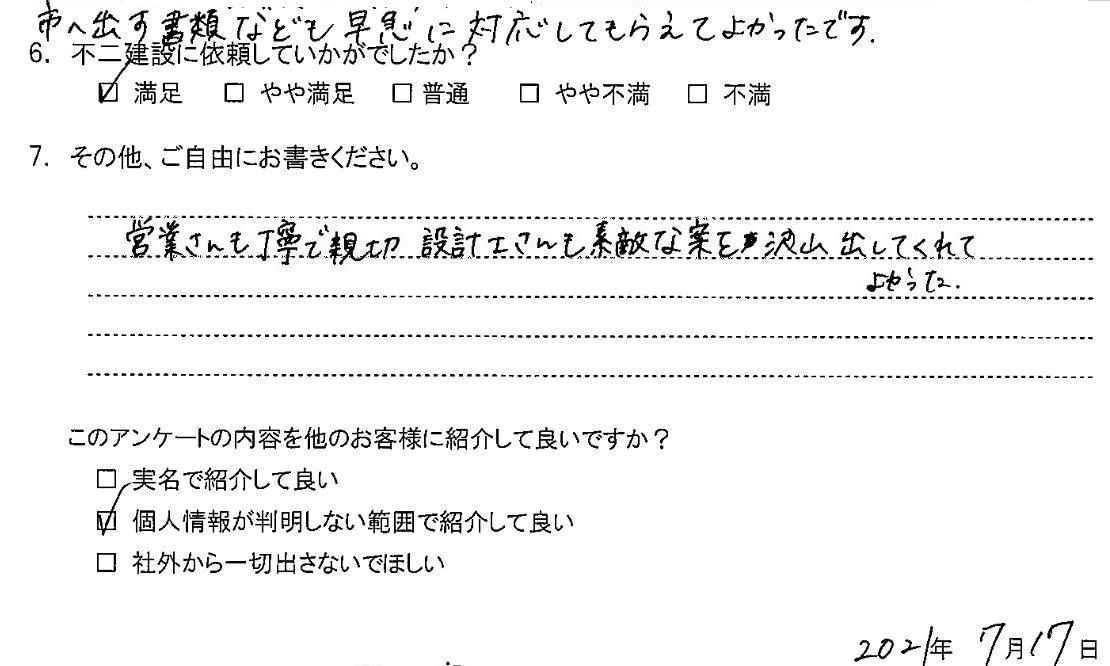 市へ出す書類なども早急に対応してもらえてよかったです.
6. 不二建設に依頼していかがでしたか？
☑ 満足 □ やや満足 □ 普通 □ やや不満 □ 不満
7. その他、ご自由にお書きください。
営業さんも丁寧で親切 設計士さんも素敵な案を沢山出してくれて
よかった.
このアンケートの内容を他のお客様に紹介して良いですか？
□ 実名で紹介して良い
☑ 個人情報が判明しない範囲で紹介して良い
□ 社外から一切出さないでほしい
2021年 7月17日